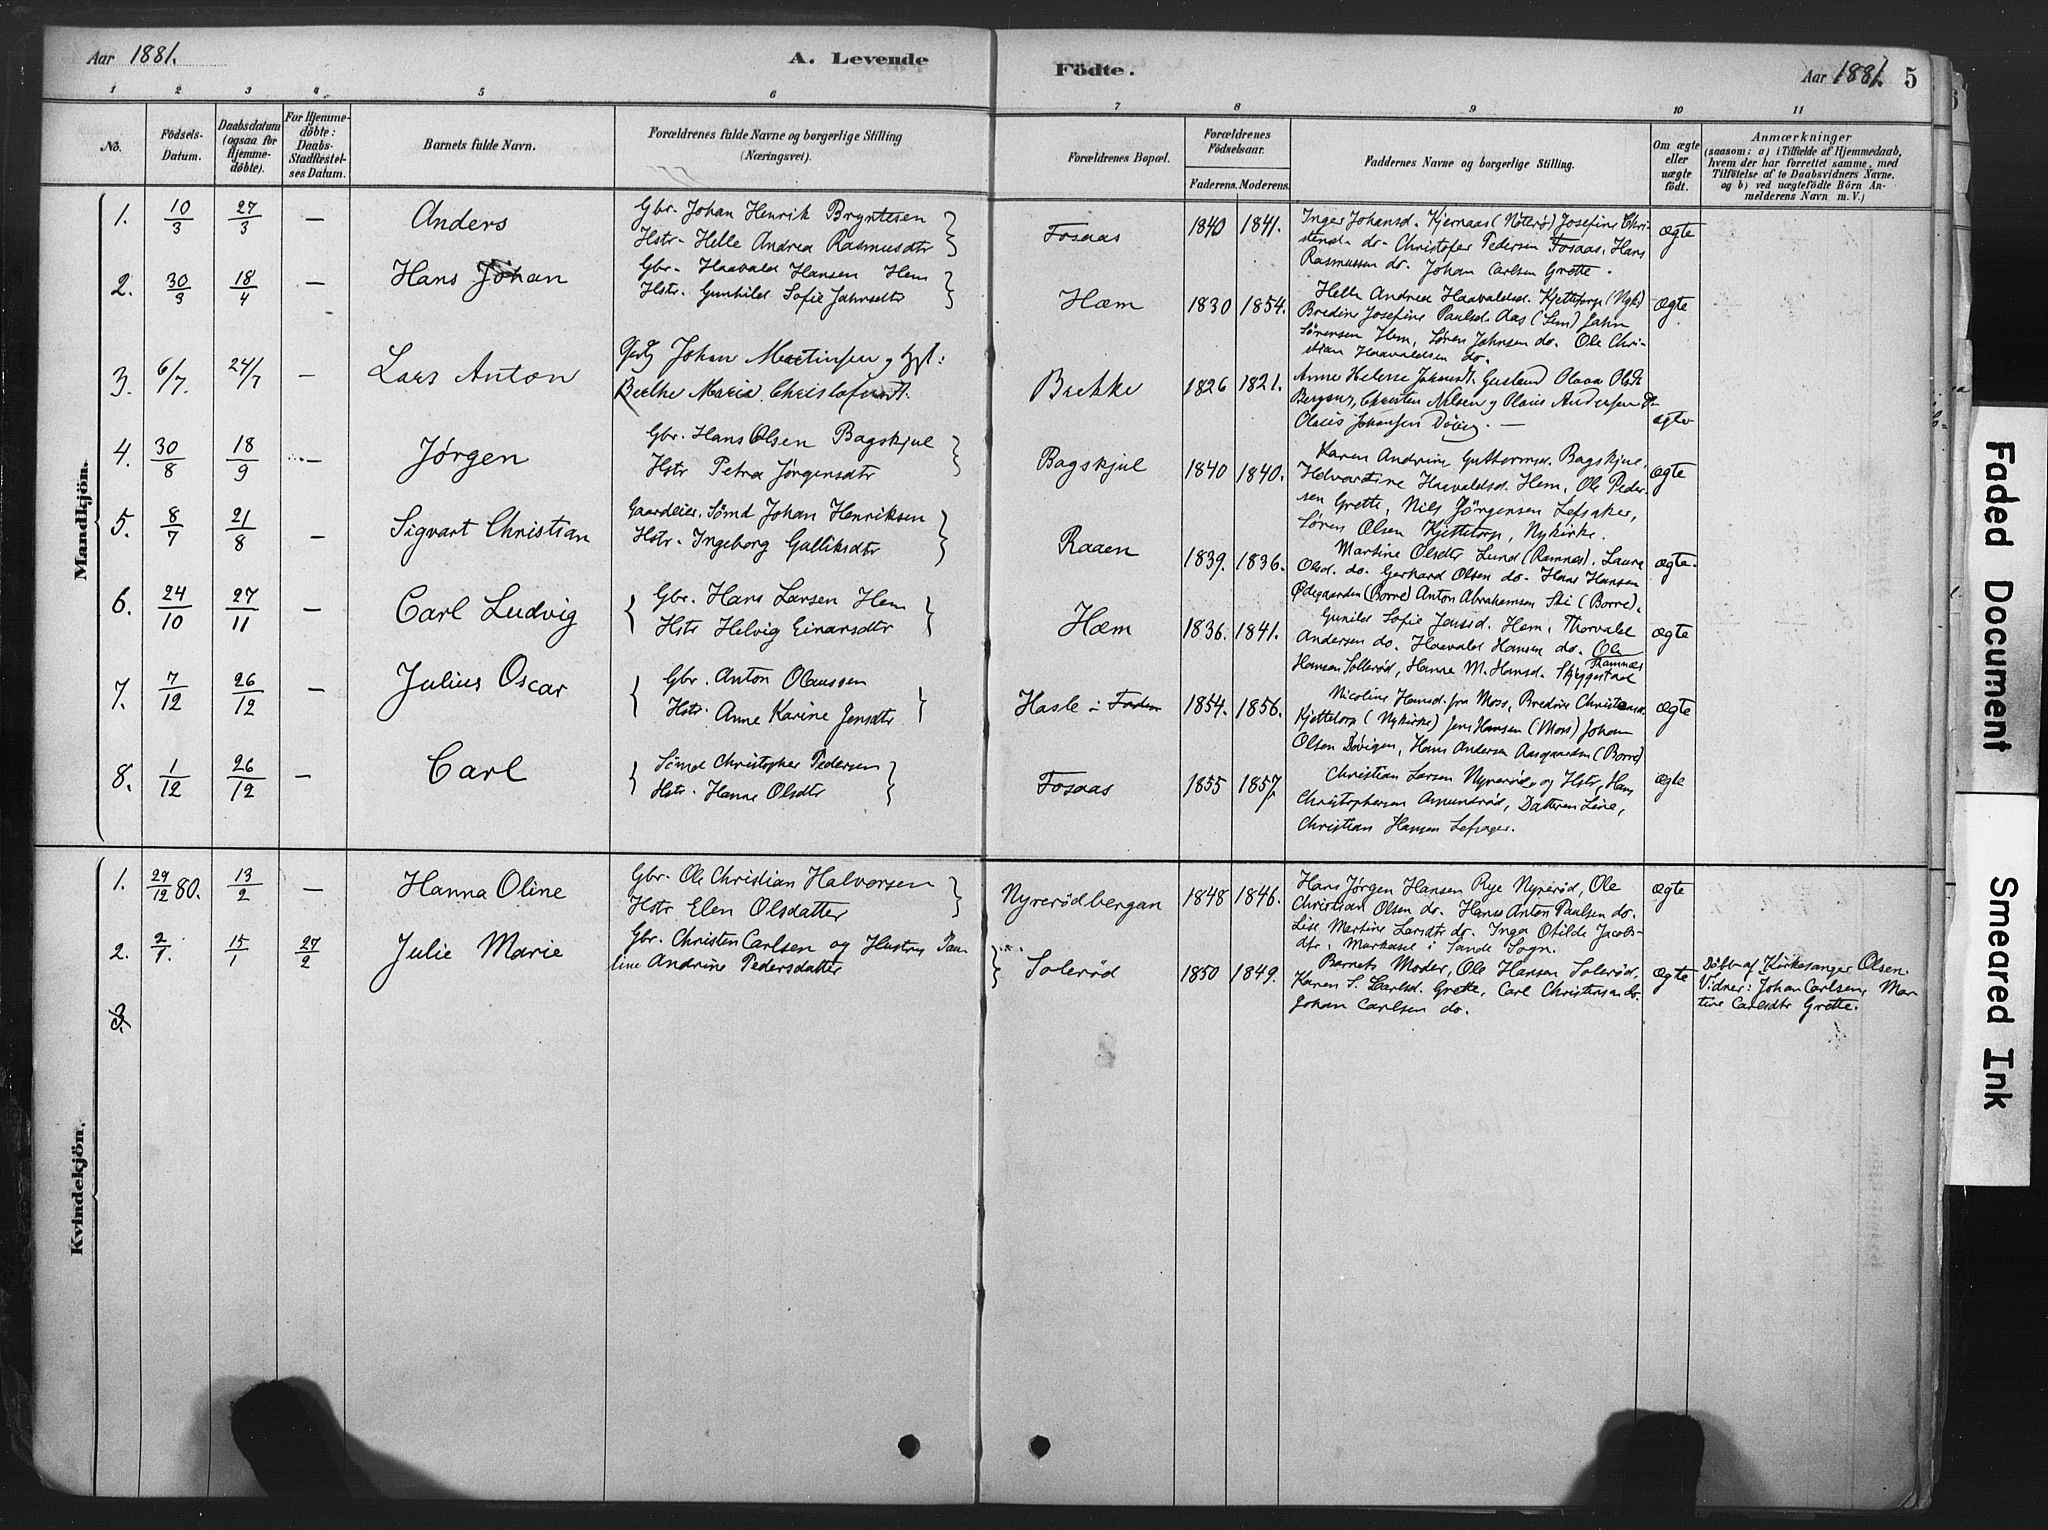 Aar 1881. A. Levende Födte. Aar 1881. 5
1 2 3 4 5 6 7 8 9 10 11
No. Födsels-Datum. Daabsdatum (ogsaa for Hjemmedöbte). For Hjemmedöbte: Daabs-Stadfæstelses Datum. Barnets fulde Navn. Forældrenes fulde Navne og borgerlige Stilling (Næringsvei). Forældrenes Bopæl. Forældrenes Födselsaar. Faderens. Moderens. Faddernes Navne og borgerlige Stilling. Om ægte eller uægte födt. Anmærkninger (saasom: a) i Tilfælde af Hjemmedaab, hvem der har forrettet samme, med Tilföielse af to Daabsvidners Navne. og b) ved uægtefödte Börn Anmelderens Navn m. V.)
Mandkjön.
1. 10/3 27/3 — Anders Gbr. Johan Henrik Bryntesen
Hstr. Helle Andrea Rasmusdtr Fosaas 1840 1841. Inger Johansd. Kjernaas (Nøterø) Josefine Chri-
stensd. do. Christofer Pedersen Fosaas, Hans
Rasmussen do. Johan Carlsen Grette. ægte
2. 30/3 18/4 — Hans Johan Gbr. Haavald Hansen Hem
Hstr. Gunhild Sofie Jahnsdtr Hæm 1830 1854. Helle Andrea Haavaldsd. Kjettetorp (Nyk)
Bredine Josefine Paulsd. Aas (Sem) Jahn
Sørensen Hem, Søren Jahnsen do. Ole Chri-
stian Haavaldsen do. Ægte
3. 6/7. 24/7 — Lars Anton Johan Martinsen
Berthe Maria Christofersdt. Brekke 1826 1821. Anne Helene
Christen Nilsen og Olaus Andersen
Olaus Johansen ægte
4. 30/8 18/9 — Jørgen Gbr. Hans Olsen Bagskjul
Hstr Petra Jørgensdtr Bagskjul 1840 1840. Karen Andrine Guttormsd. Bagskjul,
Helvardine Haavaldsd. Hem, Ole Peder-
sen Grette, Nils Jörgensen Lefsaker,
Søren Olsen Kjettetorp, Nykirke. ægte
5. 8/7 21/8 — Sigvart Christian Gaardeier, Sömd Johan Henriksen
Hstr. Ingeborg Gulliksdtr Raaen 1839. 1836. Martine Olsdtr Lund (Ramnæs). Laura
Olsd. do. Gerhard Olsen do. Hans Hansen
Ødegaarden (Borre) Anton Abrahamsen Ski (Borre). ægte.
6. 24/10 27/11 — Carl Ludvig Gbr. Hans Larsen Hem
Hstr Helvig Einarsdtr Hæm 1836. 1841. Gunild Sofie Jensd. Hem, Thorvald
Andersen do. Haavald Hansen do. Ole
Hansen Sollerød, Hanne M. Hansd. Skjeggestad Ramnæs ægte
7. 7/12 26/12 — Julius Oscar Gbr. Anton Olaussen
Hstr. Anne Karine Jensdtr Hasle i 1854. 1856. Nicoline Hansd. fra Moss, Bredine Christensd.
Kjettetorp (Nykirke) Jens Hansen (Moss) Johan
Olsen Døvigen, Hans Andersen Aasgaarden (Borre) ægte
8. 1/12 26/12 — Carl Sömd Christopher Pedersen
Hstr. Hanne Olsdtr Fosaas 1855 1857. Christian Larsen Nyrerød og Hstr, Hans
Christophersen Amundrød, Datteren Line,
Christian Hansen Lefsager. ægte
Kvindekjön.
1. 29/12 80. 13/2 — Hanna Oline Gbr. Ole Christian Halvorsen
Hstr Elen Olsdatter Nyrerødbergan 1848 1846. Hans Jørgen Hansen Rye Nyrerød, Ole
Christian Olsen do. Hans Anton Paulsen do.
Lise Martine Larsdtr do. Inga Otilde Jacobs-
dtr. i Sande Sogn. ægte
2. 2/1. 15/1 27/2 Julie Marie Gbr. Christen Carlsen og Hustru Pau-
line Andrine Pedersdatter Solerød 1850 1849. Barnets Moder, Ole Hansen Solerød,
Karen S. Carlsd. Grette, Carl Christensen do.
Johan Carlsen do. Ægte Döbt af Kirkesanger Olsen.
Vidner: Johan Carlsen, Mar-
tine Carlsdtr Grette.
3.
Faded Document
Smeared Ink